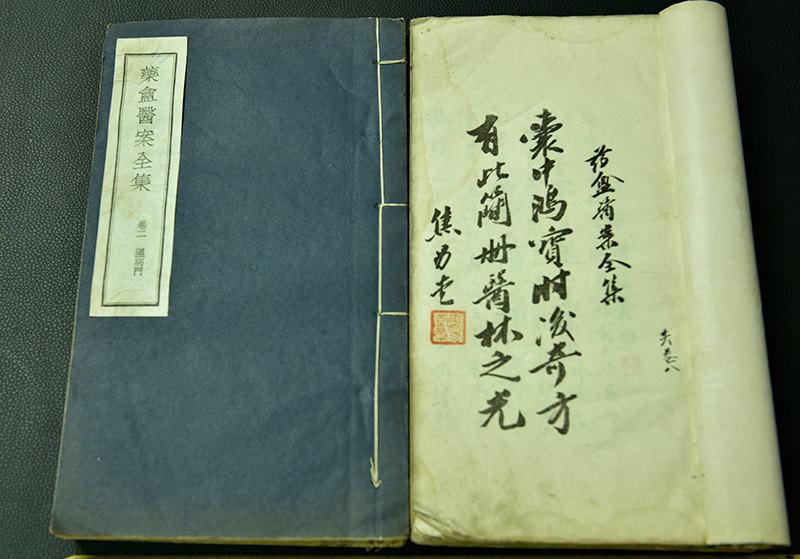 藥盦醫案全集
卷二 溫病門
药盦醫案全集
囊中鴻寶肘後奇方
有此簡冊醫林之光
焦易堂